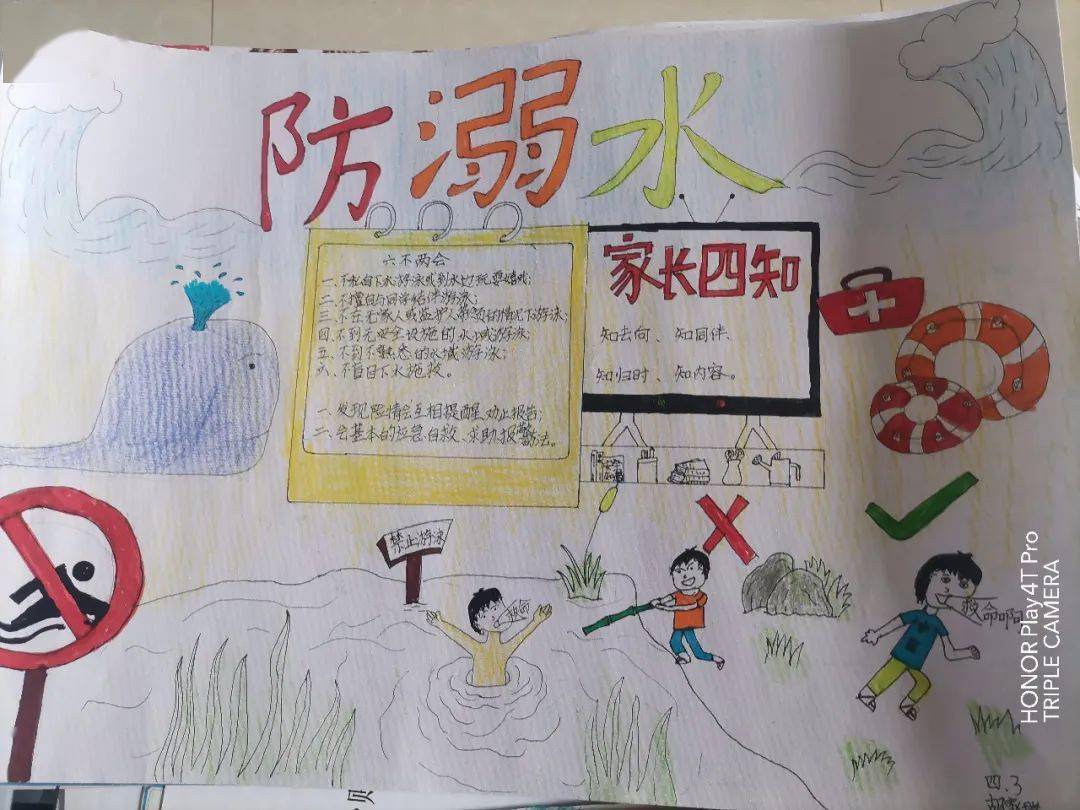 防溺水
六不两会
一、不私自下水游泳或到水边玩耍嬉戏;
二、不擅自与同学结伴游泳;
三、不在无家人或监护人带领的情况下游泳;
四、不到无安全设施的水域游泳;
五、不到不熟悉的水域游泳;
六、不盲目下水施救。
一、发现险情会互相提醒、劝止报告;
二、会基本的应急自救、求助报警方法。
家长四知
知去向、知同伴、
知归时、知内容。
禁止游泳
救命
救命啊
四.3
HONOR Play4T Pro
TRIPLE CAMERA